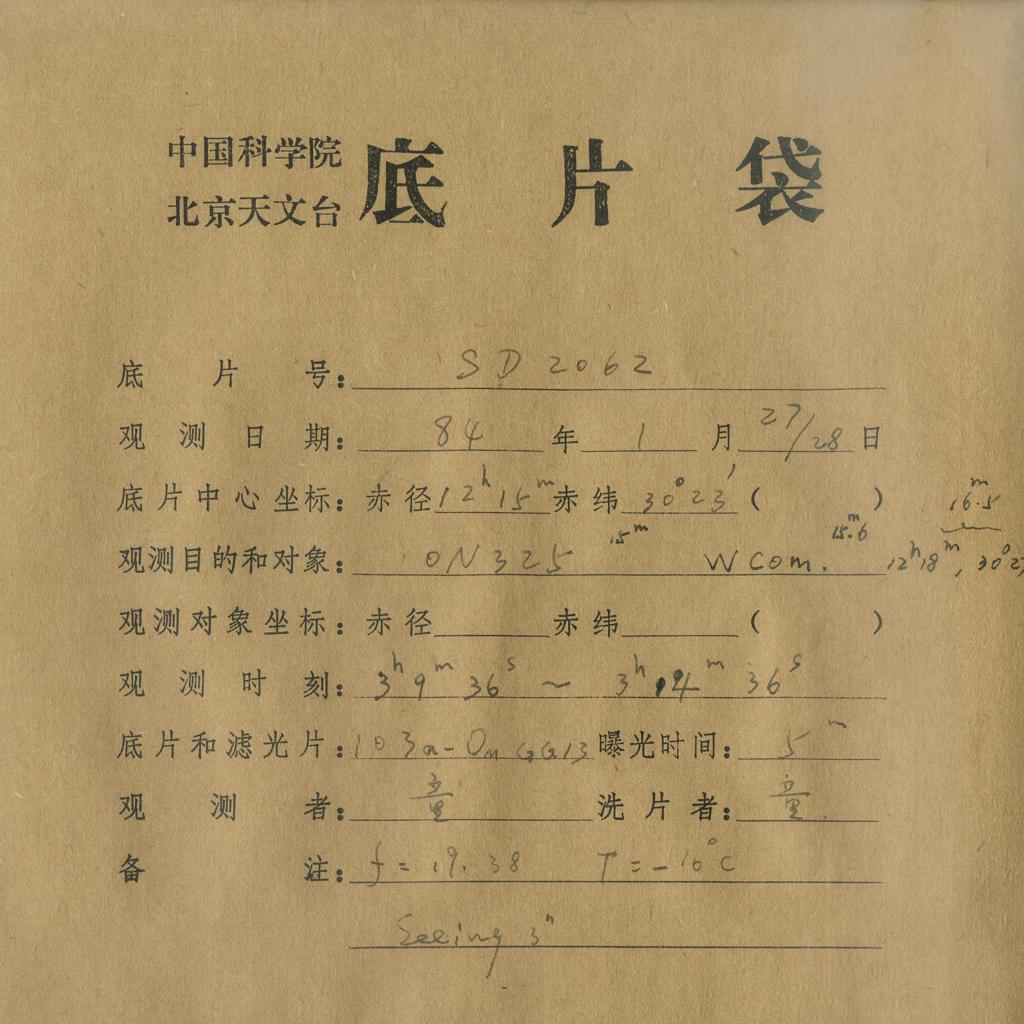 中国科学院
北京天文台 底片袋
底片号: SD2062
观测日期: 84 年 1 月 27/28 日
底片中心坐标: 赤径 12ʰ15ᵐ 赤纬 30°23′ ( ) 16ᵐ.5
观测目的和对象: ON325 15ᵐ W Com. 15ᵐ.6 12ʰ18ᵐ, 30°2
观测对象坐标: 赤径 赤纬 ( )
观测时刻: 3ʰ9ᵐ36ˢ ~ 3ʰ14ᵐ36ˢ
底片和滤光片: 103a-O GG13 曝光时间: 5ᵐ
观测者: 童 洗片者: 童
备注: f = 19.38 T = -10°C
Seeing 3"